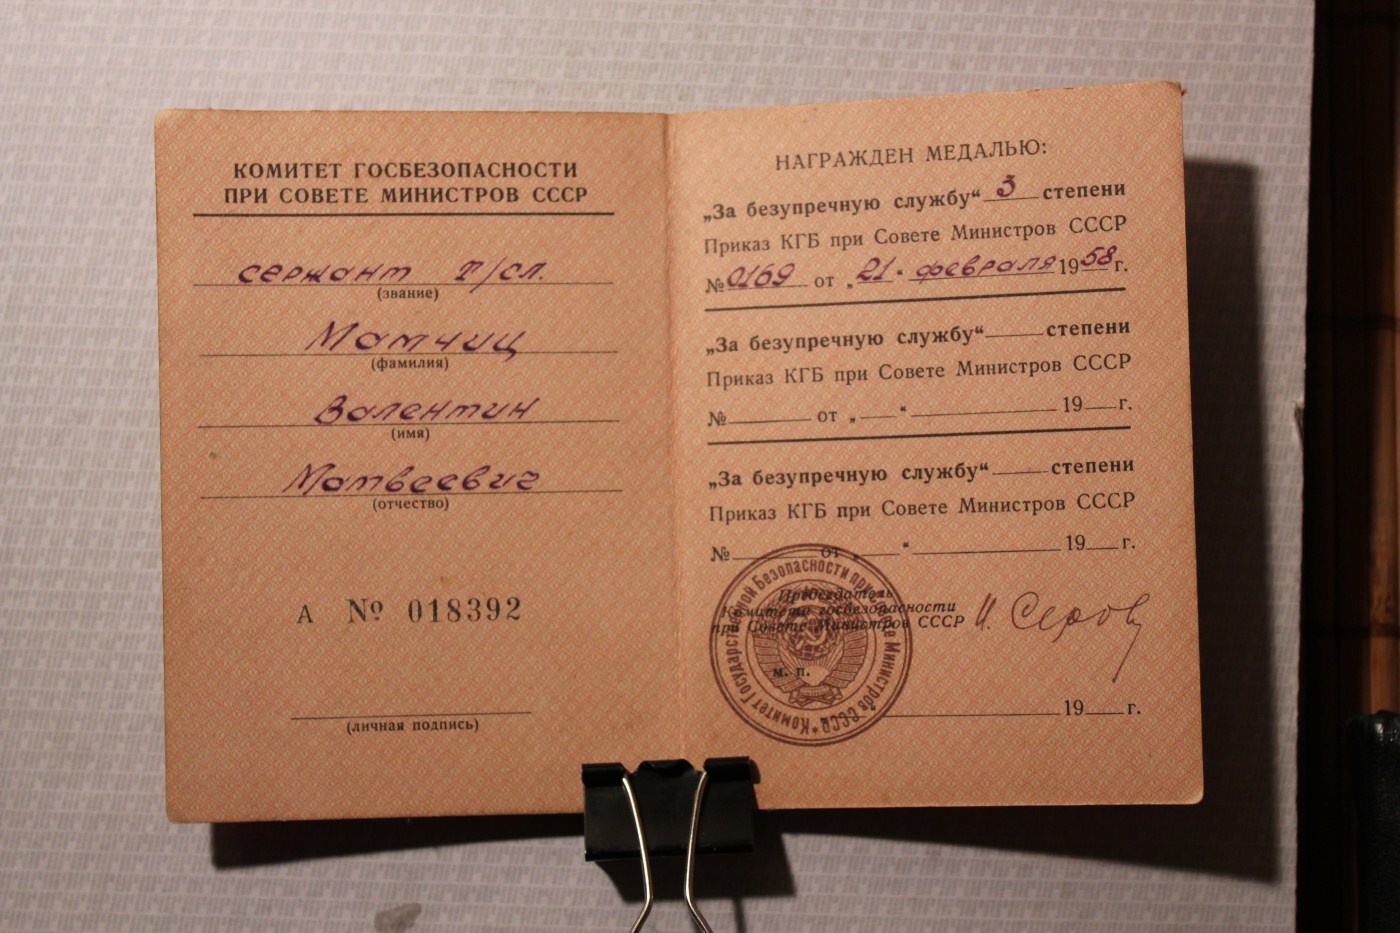 КОМИТЕТ ГОСБЕЗОПАСНОСТИ
ПРИ СОВЕТЕ МИНИСТРОВ СССР
сержант т/сл.
(звание)
Матчиц
(фамилия)
Валентин
(имя)
Матвеевич
(отчество)
А № 018392
(личная подпись)
НАГРАЖДЕН МЕДАЛЬЮ:
„За безупречную службу“ 3 степени
Приказ КГБ при Совете Министров СССР
№ 0169 от „21“ февраля 1958 г.
„За безупречную службу“ степени
Приказ КГБ при Совете Министров СССР
№ от „ “ 19 г.
„За безупречную службу“ степени
Приказ КГБ при Совете Министров СССР
№ от „ “ 19 г.
Председатель
Комитета госбезопасности
при Совете Министров СССР И. Серов
м. п.
19 г.
Комитет Государственной Безопасности при Совете Министров СССР